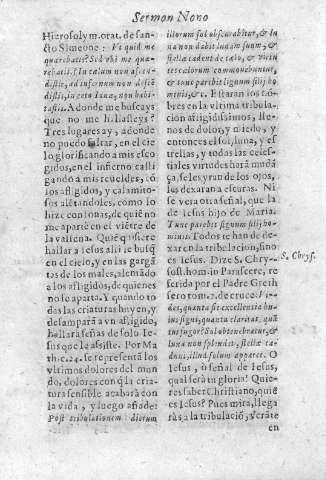 Sermon Nono
Hierosolym.orat. de san-
cto Simeone: Vt quid me
quærebatis? Sed vbi me quæ-
rebatis? In cælum non ascen-
distis, ad infernum non descē
distis, in ceto Ionæ, non habi-
tastis. A donde me buscays
que no me hallasteys?
Tres lugares ay, adonde
no puedo faltar, en el cie
lo glorificando a mis esco
gidos, en el infierno casti
gando a mis rebeldes, cō
los afligidos, y calamito-
sos alētandoles, como lo
hize con Ionas, de quiē no
me aparte en el viētre de
la vallena. Quiē quisiere
hallar a Iesus alli le busq̄
en el cielo, y en las gargā
tas de los males, alētādo
a los afligidos, de quienes
no se aparta. Y quando to
das las criaturas huyen, y
desamparā a vn afligido,
hallarà señas de solo Ie-
sus que le assiste. Por Ma
th. c. 24. se representā los
vltimos dolores del mun
do, dolores con q̄ la cria-
tura sensible acabarà con
la vida, y luego añade:
Post tribulationem dierum
illorum sol obscurabitur, & lu
na non dabit lumen suum, &
stellæ cadent de cælo, & virtu
tes cælorum commouebuntur,
& tunc parebit signum filij ho
minis, &c. Estaràn los hō
bres en la vltima tribula-
cion afligidissimos, lle-
nos de dolor, y miedo, y
entonces el sol, luna, y es
trellas, y todas las celes-
tiales virtudes haràn mudā
ça, se les yràn de los ojos,
los dexaràn a escuras. Ni
se verà otra señal, que la
de Iesus hijo de Maria.
Tunc parebit signum filij ho-
minis. Todos te han de de-
xar en la tribulacion, sino
es Iesus. Dize S. Chry-
sost. hom. in Parasceve, re
ferida por el Padre Greth
sero tom. 2. de cruce: Vi-
des, quanta sit excellentia hu-
ius signi, quanta claritas, quā
tus fulgor? Sol obtenebratur, &
luna non splendet, stellæ ca-
dunt, illud solum apparet. O
Iesus, ò señal de Iesus,
qual serà tu gloria! Quie-
res saber Christiano, quiē
es Iesus? Pues mira, llega
ràs a la tribulaciō, veràte
en
S. Chrys.